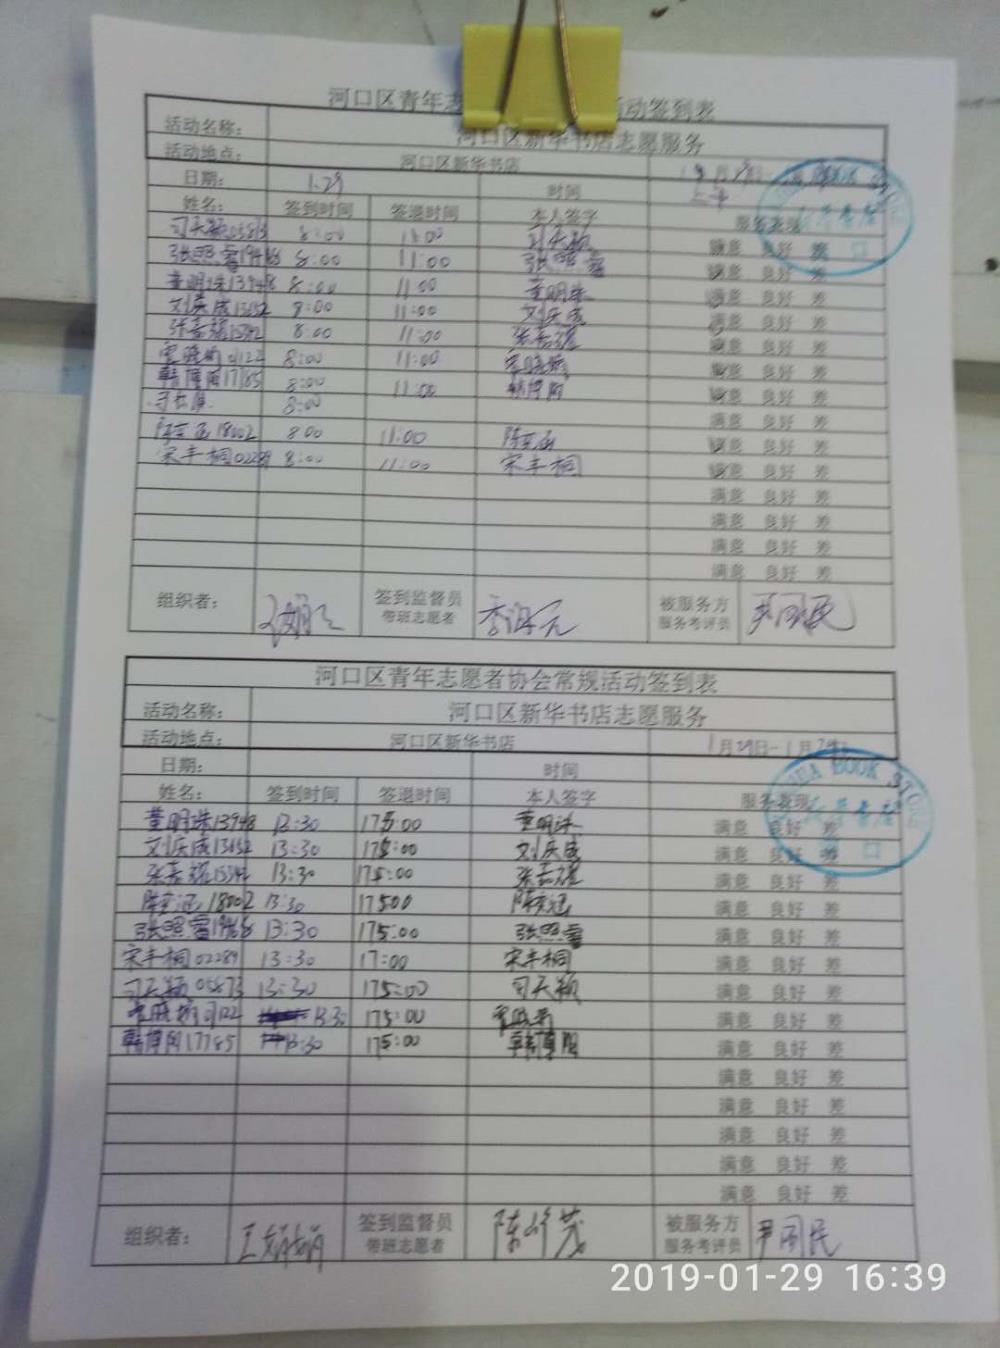 河口区青年志 活动签到表
活动名称: 河口区新华书店志愿服务
活动地点: 河口区新华书店
日期: 1.29 时间
姓名: 签到时间 签退时间 本人签字 服务表现
司天颖 8:00 11:00 司天颖 满意 良好 差
张照雪 8:00 11:00 张照雪 满意 良好 差
董明珠13948 8:00 11:00 董明珠 满意 良好 差
刘庆成13652 8:00 11:00 刘庆成 满意 良好 差
张嘉耀 8:00 11:00 张嘉耀 满意 良好 差
8:00 11:00 满意 良好 差
韩博阅17785 8:00 11:00 韩博阅 满意 良好 差
8:00 满意 良好 差
18002 8:00 11:00 满意 良好 差
宋丰桐02289 8:00 11:00 宋丰桐 满意 良好 差
满意 良好 差
满意 良好 差
满意 良好 差
满意 良好 差
组织者: 签到监督员 带班志愿者 被服务方 服务考评员 尹国民
河口区青年志愿者协会常规活动签到表
活动名称: 河口区新华书店志愿服务
活动地点: 河口区新华书店 1月29日-1月29日
日期: 时间
姓名: 签到时间 签退时间 本人签字 服务表现
董明珠13948 13:30 17:00 董明珠 满意 良好 差
刘庆成13652 13:30 17:00 刘庆成 满意 良好 差
张嘉耀 13:30 17:00 张嘉耀 满意 良好 差
18002 13:30 17:00 满意 良好 差
张照雪 13:30 17:00 张照雪 满意 良好 差
宋丰桐02289 13:30 17:00 宋丰桐 满意 良好 差
司天颖05873 13:30 17:00 司天颖 满意 良好 差
13:30 17:00 满意 良好 差
韩博阅17785 13:30 17:00 韩博阅 满意 良好 差
满意 良好 差
满意 良好 差
满意 良好 差
满意 良好 差
满意 良好 差
组织者: 王娟娟 签到监督员 带班志愿者 被服务方 服务考评员 尹国民
BOOK STORE
2019-01-29 16:39